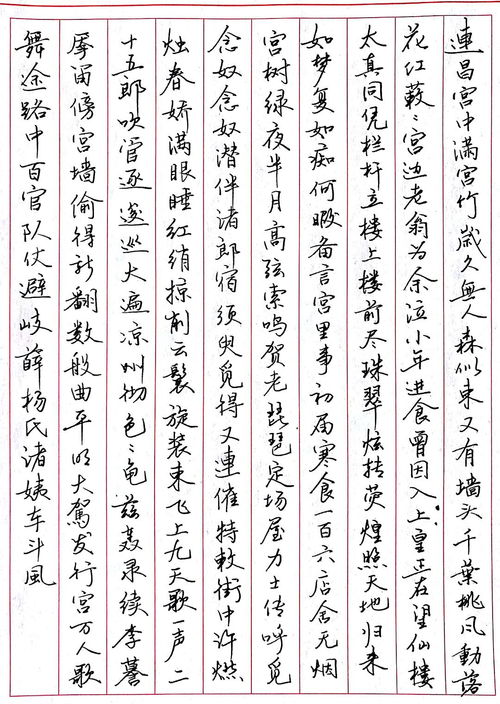 連昌宫中满宫竹歲久無人森似束又有墙头千葉桃风動落
花红蔌〻宫边老翁为余泣小年进食曾因入上皇正在望仙楼
太真同凭栏杆立楼上楼前尽珠翠炫转荧煌照天地归来
如梦复如痴何暇备言宫里事初届寒食一百六店舍无烟
宫树绿夜半月高弦索鸣贺老琵琶定场屋力士传呼觅
念奴念奴潜伴诸郎宿须臾觅得又連催特敕街中许燃
烛春娇满眼睡红绡掠削云鬓旋装束飞上九天歌一声二
十五郎吹管逐逡巡大遍凉州彻色〻龟兹轰录续李謩
擪笛傍宫墙偷得新翻数般曲平明大駕发行宫万人歌
舞途路中百官队仗避岐薛杨氏诸姨车斗風